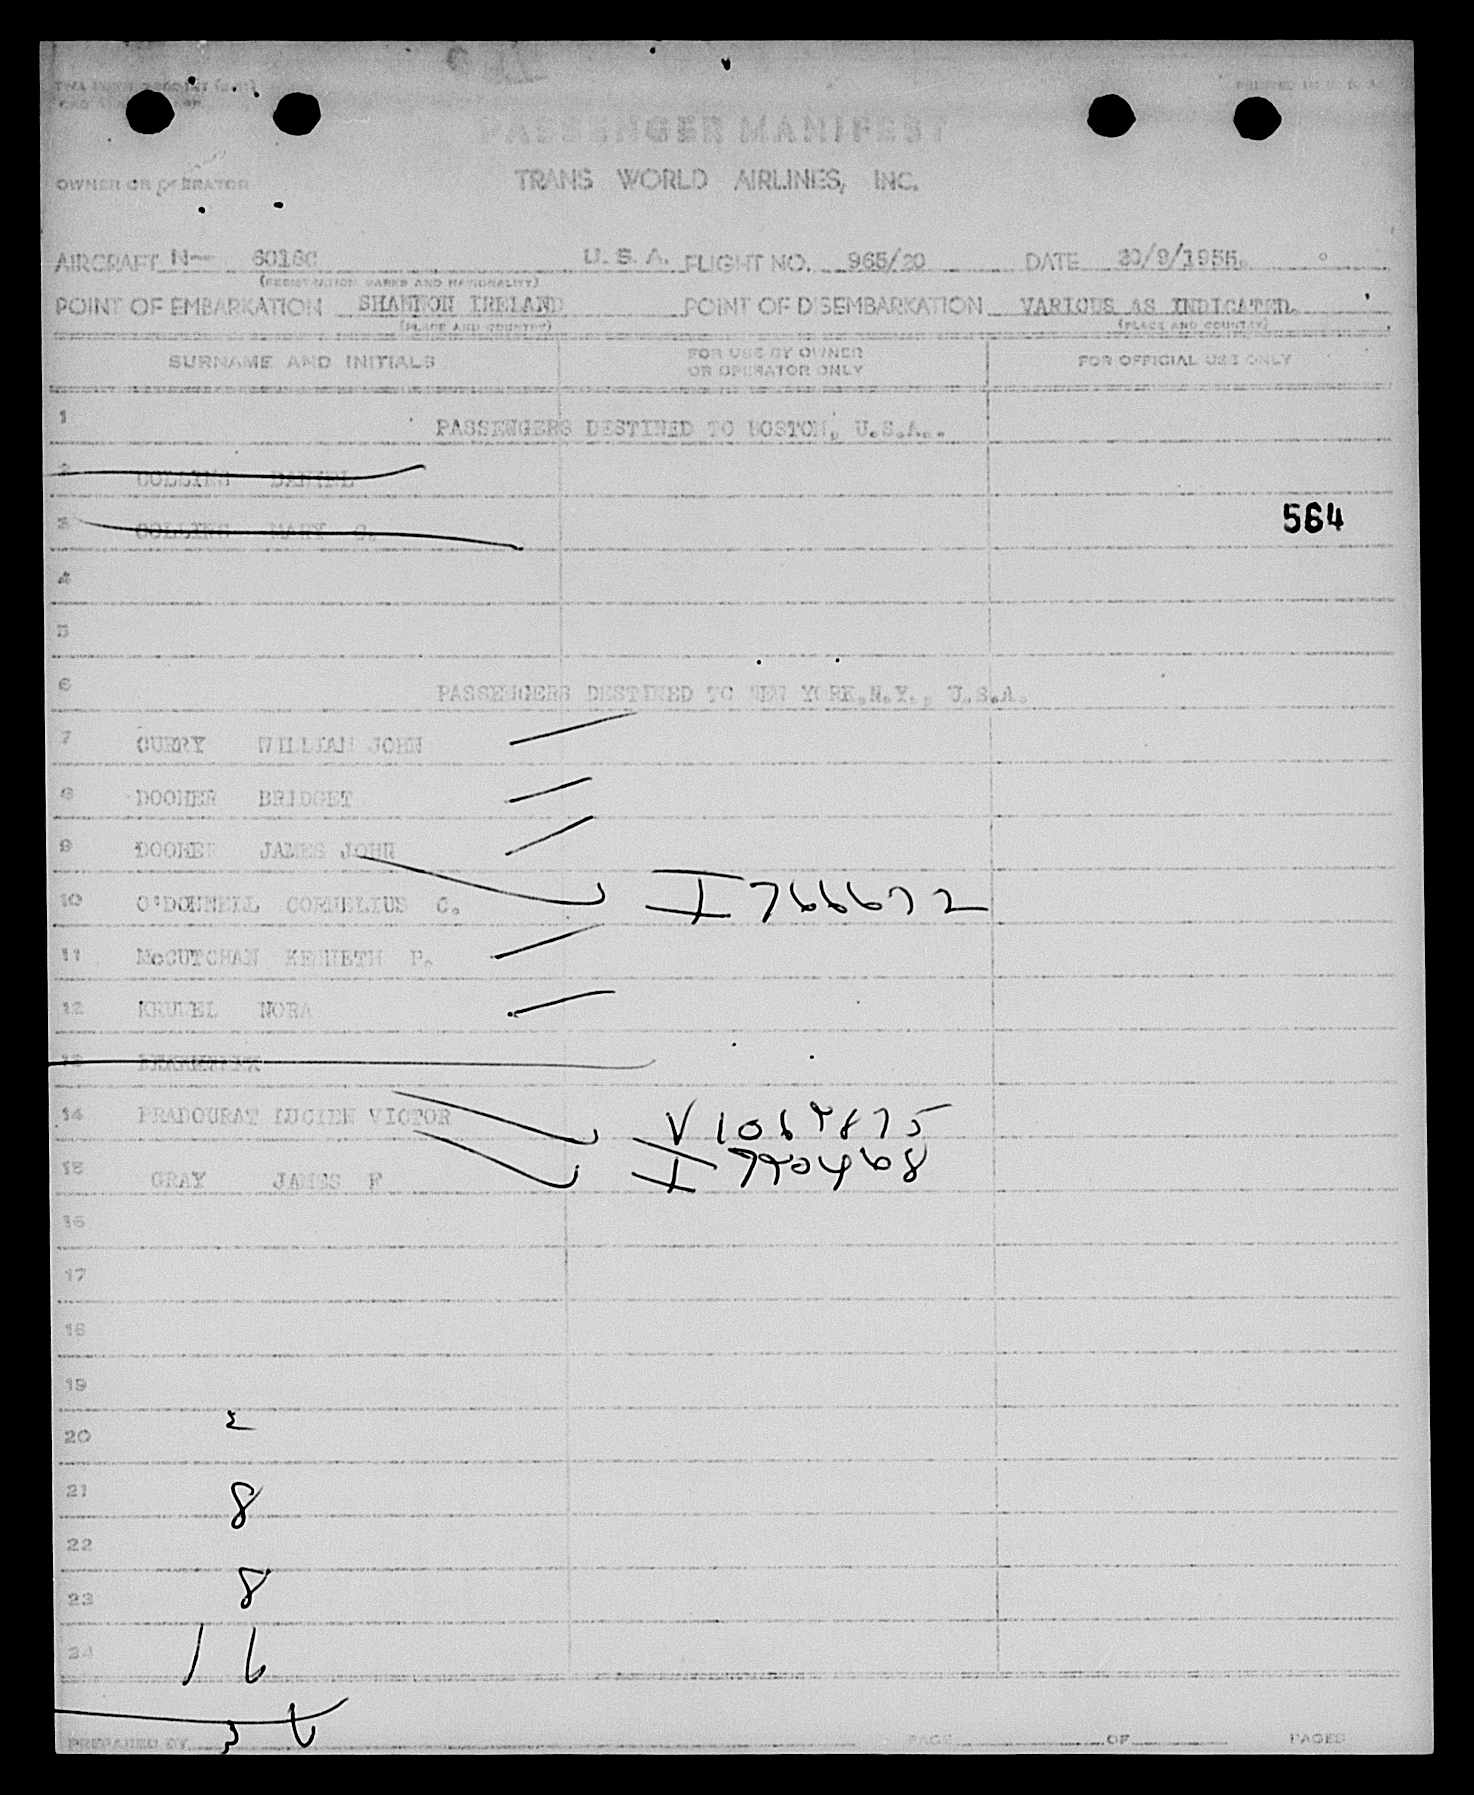 PRINTED IN U. S. A.
PASSENGER MANIFEST
OWNER OR OPERATOR TRANS WORLD AIRLINES, INC.
AIRCRAFT N-- 6016C U. S. A. FLIGHT NO. 965/20 DATE 20/9/1955.
(REGISTRATION MARKS AND NATIONALITY)
POINT OF EMBARKATION SHANNON IRELAND POINT OF DISEMBARKATION VARIOUS AS INDICATED.
(PLACE AND COUNTRY) (PLACE AND COUNTRY)
SURNAME AND INITIALS FOR USE BY OWNER OR OPERATOR ONLY FOR OFFICIAL USE ONLY
1 PASSENGERS DESTINED TO BOSTON, U.S.A..
2 COLLINS DANIEL
3 COLLINS MARY C. 564
4
5
6 PASSENGERS DESTINED TO NEW YORK.N.Y., U.S.A.
7 CURRY WILLIAM JOHN
8 DOOHER BRIDGET
9 DOOHER JAMES JOHN
10 O'DONNELL CORNELIUS C. I 766672
11 McCUTCHAN KENNETH P.
12 KRUDEL NORA
13
14 PRADOURAT LUCIEN VICTOR
15 GRAY JAMES F
16
17
18
19
20 2
21 8
22
23 8
24 16
PREPARED BY PAGE OF PAGES